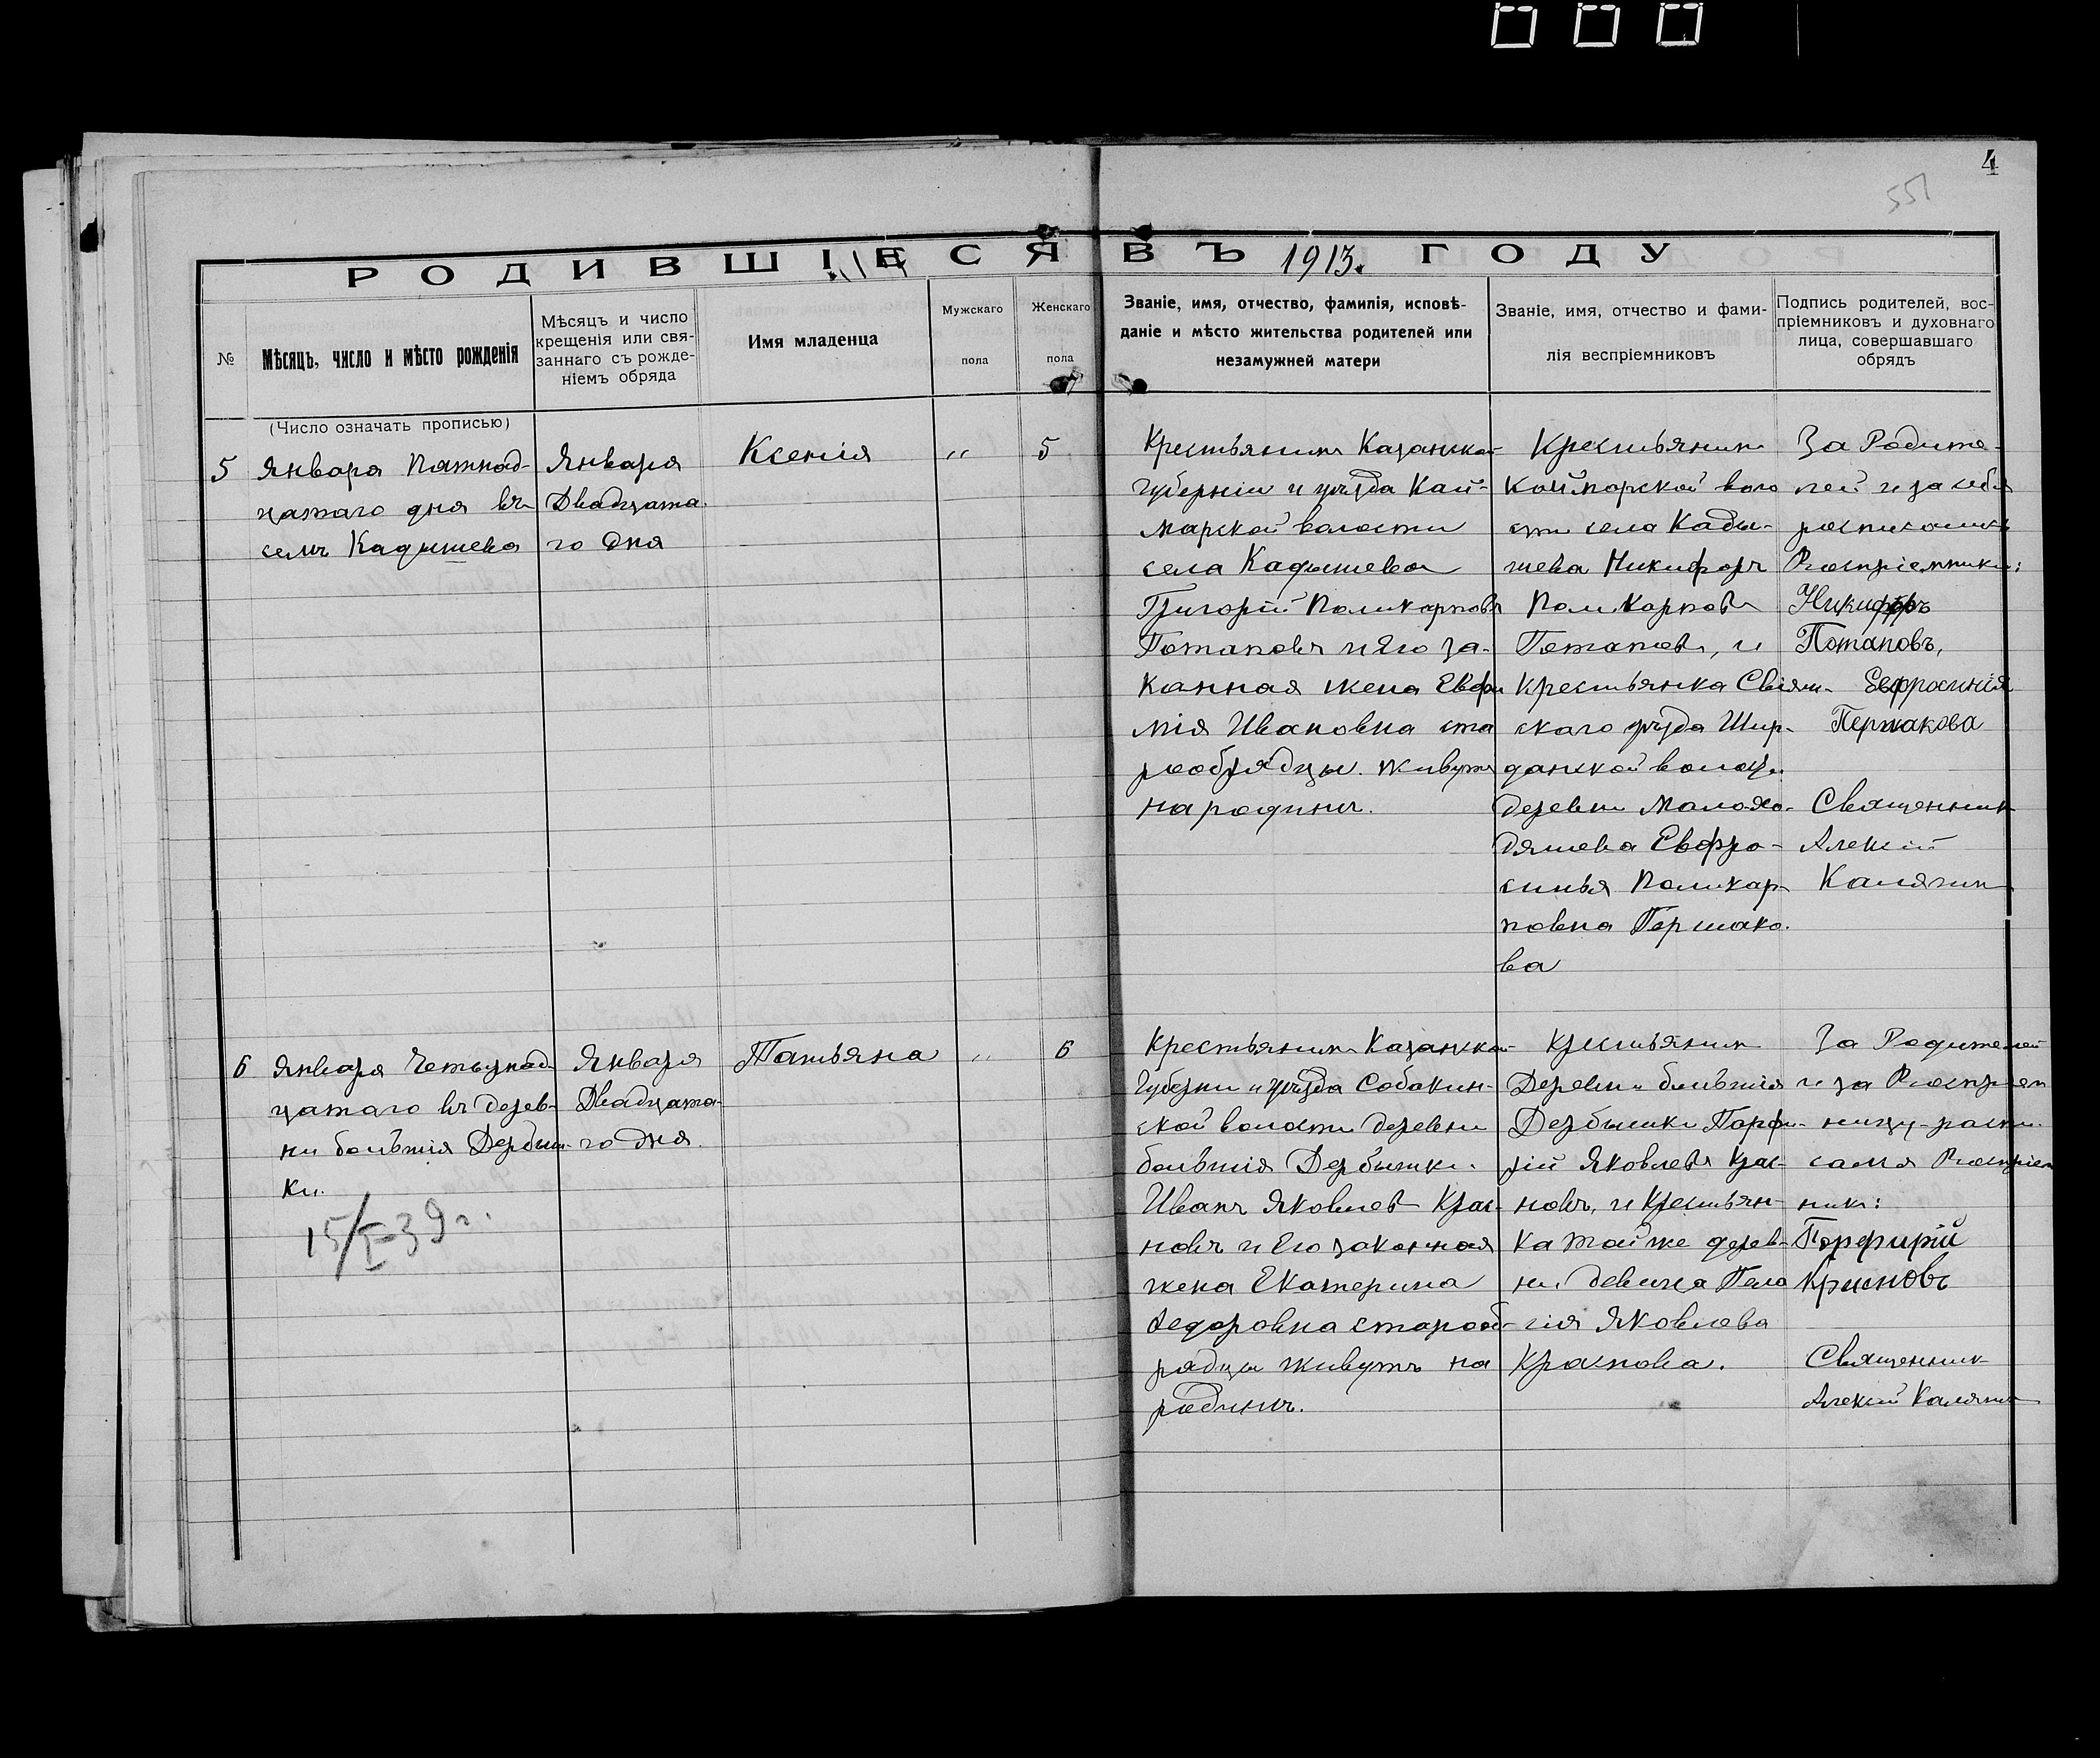 4
557
РОДИВШІЕСЯ ВЪ 1913. ГОДУ
№
Мѣсяцъ, число и мѣсто рожденія
Мѣсяцъ и число
крещенія или свя-
заннаго съ рожде-
ніемъ обряда
Имя младенца
Мужскаго
пола
Женскаго
пола
Званіе, имя, отчество, фамилія, исповѣ-
даніе и мѣсто жительства родителей или
незамужней матери
Званіе, имя, отчество и фами-
лія веспріемниковъ
Подпись родителей, вос-
пріемниковъ и духовнаго
лица, совершавшаго
обрядъ
(Число означать прописью)
5
Января Пятнад-
цатаго дня въ
селѣ Кадышева
Января
Двадцата-
го дня
Ксенія
"
5
Крестьянинъ Казанской
губерніи и уѣзда Кай-
марской волости
села Кадышева
Григорій Поликарповъ
Потаповъ и его за-
конная жена Евфи
мія Ивановна ста
рообрядцы. живутъ
на родинѣ.
Крестьянинъ
Каймарской воло
сти села Кады-
шева Никифоръ
Поликарповъ
Потаповъ, и
Крестьянка Свіяж-
скаго уѣзда Шир-
данской волости
деревни
Евфро-
синья Поликар-
повна
ва
За Родите-
лей и за себя
Воспріемники:
Никифоръ
Потаповъ,
Евфросинія
Священник
Алексій
Калягин
6
Января Четырнад-
цатаго въ дерев-
ни большія Дербыш-
ки.
15/I-39 г.
Января
Двадцата-
го дня.
Татьяна
"
6
Крестьянинъ Казанской
Губерни и уѣзда Собакин-
ской волости деревни
большія Дербышки.
Иванъ Яковлевъ Крас-
новъ и его законная
жена Екатерина
Федоровна старооб-
рядцы живутъ на
родинѣ.
Крестьянин
Деревни большія
Дербышки Парфи-
рій Яковлевъ Крас-
новъ, и Крестьян-
ка той же дерев-
ни девица Пела
гія Яковлева
Краснова.
За Родителей
и за Воспріем
ницу распи-
сался Воспріем
ник:
Порфирій
Красновъ
Священник
Алексій Калягин